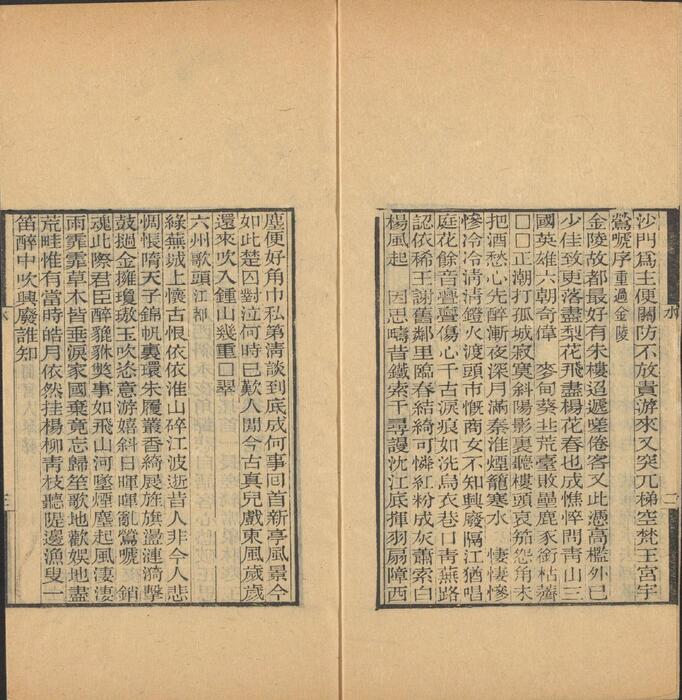 沙門爲主便關防不放貴游來又突兀梯空梵王宮宇
鶯嗁序重過金陵
金陵故都最好有朱樓迢遞嗟倦客又此憑高檻外已
少佳致更落盡梨花飛盡楊花春也成憔悴問青山三
國英雄六朝奇偉　麥甸葵邱荒臺敗壘鹿豕銜枯薺
□□正潮打孤城寂寞斜陽影裏聽樓頭哀笳怨角未
把酒愁心先醉漸夜深月滿秦淮煙籠寒水　悽悽慘
慘冷冷清清燈火渡頭市慨商女不知興廢隔江猶唱
庭花餘音亹亹傷心千古淚痕如洗烏衣巷口青蕪路
認依稀王謝舊鄰里臨春結綺可憐紅粉成灰蕭索白
楊風起　因思疇昔鐵索千尋謾沈江底揮羽扇障西
塵便好角巾私第清談到底成何事回首新亭風景今
如此楚囚對泣何時已歎人閒今古真兒戲東風歲歲
還來吹入鍾山幾重□翠
六州歌頭江都
綠蕪城上懷古恨依依淮山碎江波逝昔人非今人悲
惆悵隋天子錦帆裏環朱履叢香綺展旌旗盪漣漪擊
鼓撾金擁瓊璈玉吹恣意游嬉斜日暉暉亂鶯嗁　銷
魂此際君臣醉貔貅獘事如飛山河墜煙塵起風淒淒
雨霏霏草木皆垂淚家國棄竟忘歸笙歌地歡娛地盡
荒畦惟有當時皓月依然挂楊柳青枝聽隄邊漁叟一
笛醉中吹興廢誰知
水
二
三